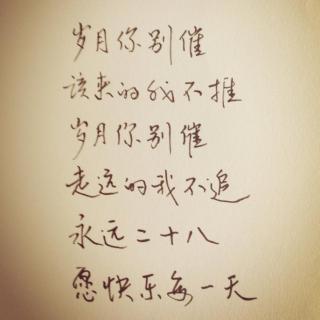 岁月你别催
该来的我不推
岁月你别催
走远的我不追
永远二十八
愿快乐每一天